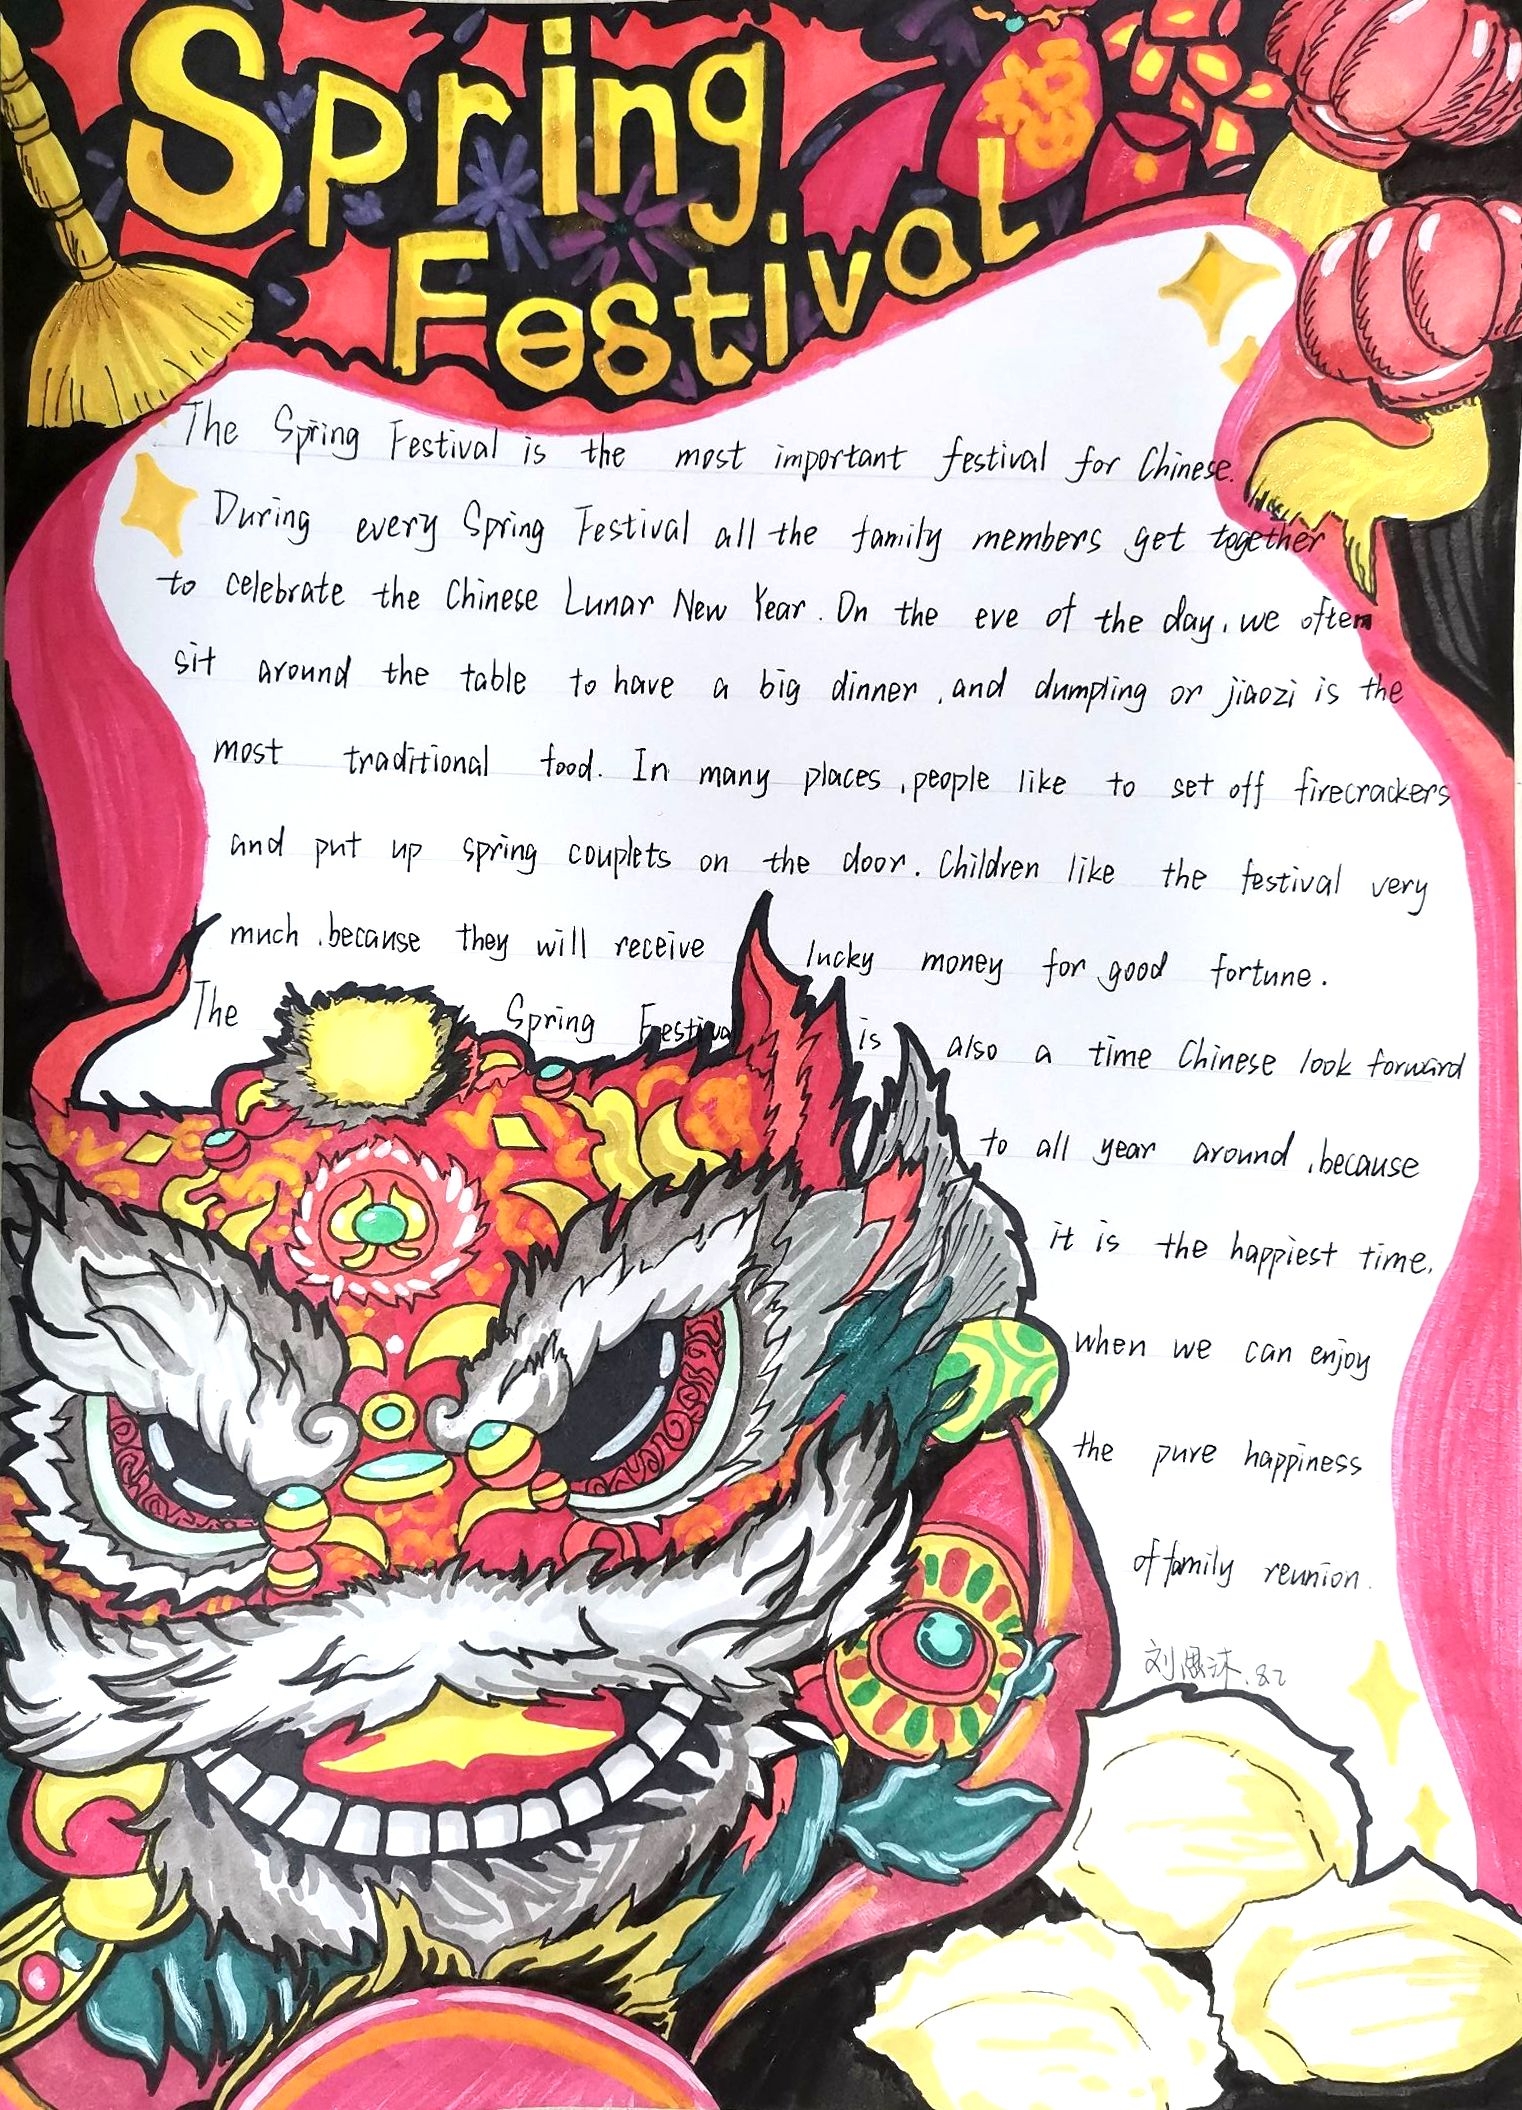 Spring
福
Festival
The Spring Festival is the most important festival for Chinese.
During every Spring Festival all the family members get together
to celebrate the Chinese Lunar New Year. On the eve of the day, we often
sit around the table to have a big dinner, and dumpling or jiaozi is the
most traditional food. In many places, people like to set off firecrackers
and put up spring couplets on the door. Children like the festival very
much, because they will receive lucky money for good fortune.
The Spring Festival is also a time Chinese look forward
to all year around, because
it is the happiest time,
when we can enjoy
the pure happiness
of family reunion.
刘思沐.8.2